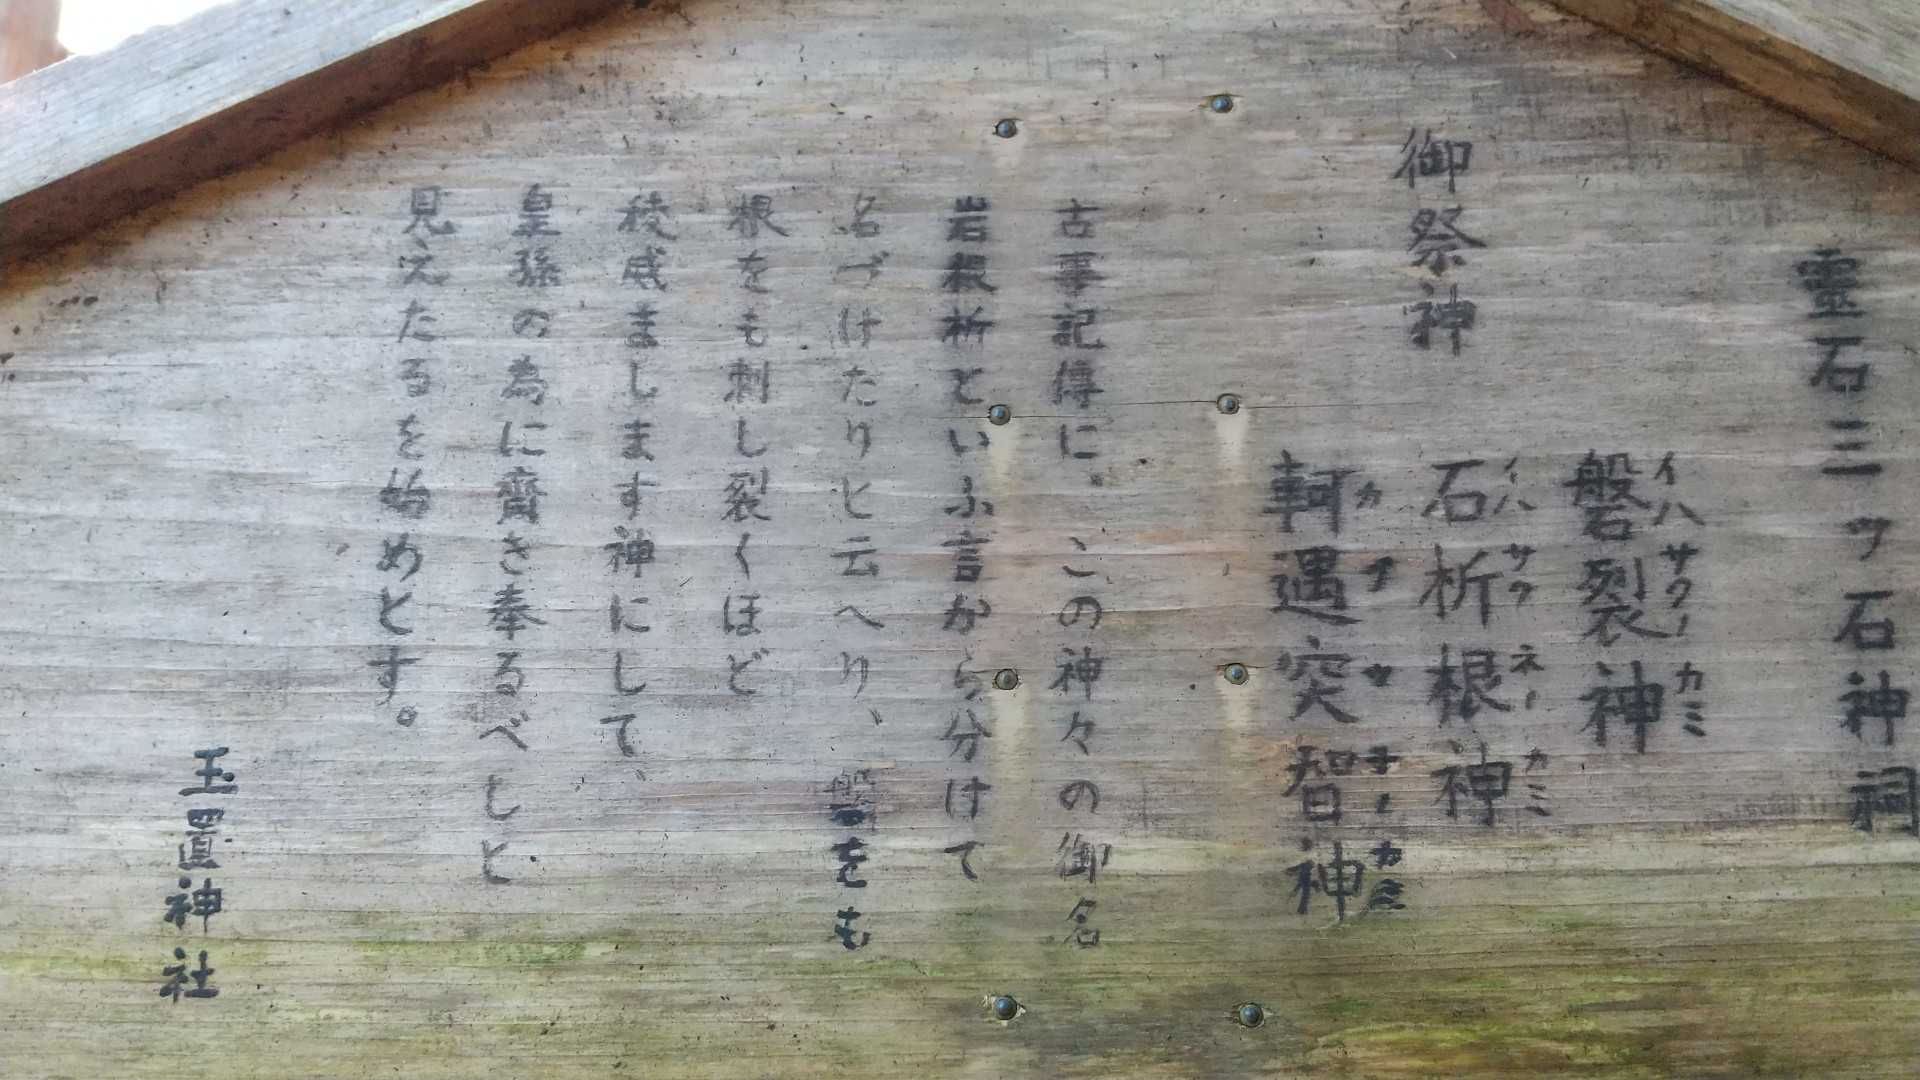 靈石三ツ石神祠
御祭神
磐裂神
イハサクノカミ
石析根神
イハサクネノカミ
軻遇突智神
カグツチノカミ
古事記傳に、この神々の御名
岩根析といふ言から分けて
名づけたりと云へり、磐をも
根をも刺し裂くほど
稜威まします神にして、
皇孫の為に齋き奉るべしと
見えたるを始めとす。
玉置神社